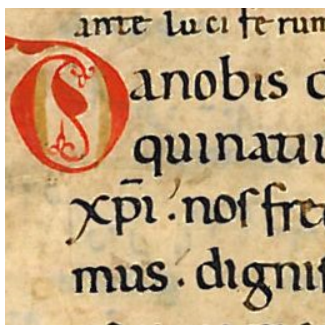 ante luciferum
Da nobis
qui natiu
xp̄i. nos fre
mus. dignis